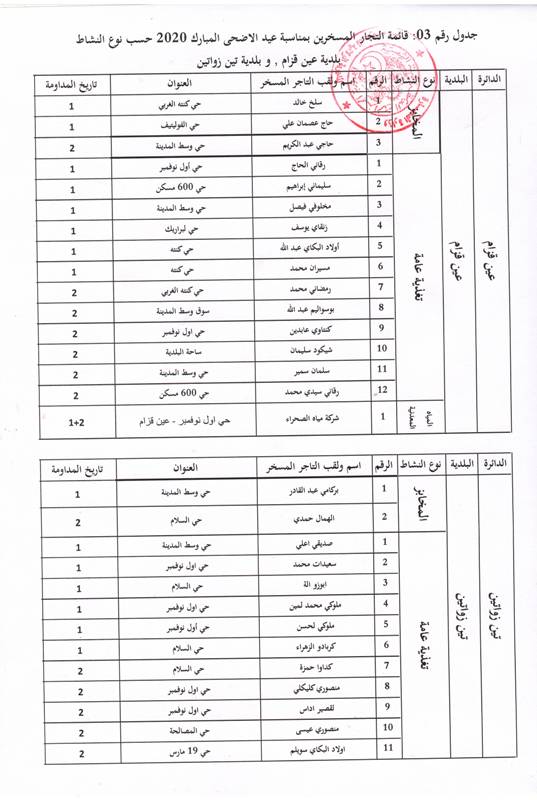 جدول رقم 03: قائمة التجار المسخرين بمناسبة عيد الاضحى المبارك 2020 حسب نوع النشاط
بلدية عين قزام , و بلدية تين زواتين
الدائرة البلدية نوع النشاط الرقم اسم ولقب التاجر المسخر العنوان تاريخ المداومة
عين قزام عين قزام المخابز 1 سلخ خالد حي كنته الغربي 1
2 حاج عصمان علي حي الفوليتيف 1
3 حاجي عبد الكريم حي وسط المدينة 2
تغذية عامة 1 رقاني الحاج حي أول نوفمبر 1
2 سليماني إبراهيم حي 600 مسكن 1
3 مخلوفي فيصل حي وسط المدينة 1
4 زنقاي يوسف حي لبراريك 1
5 أولاد البكاي عبد الله حي كنته 1
6 مسيران محمد حي كنته 1
7 رمضاني محمد حي كنته الغربي 2
8 بوسواليم عبد الله سوق وسط المدينة 2
9 كنتاوي عابدين حي اول نوفمبر 2
10 شيكود سليمان ساحة البلدية 2
11 سلمان سمير حي وسط المدينة 2
12 رقاني سيدي محمد حي 600 مسكن 2
المياه المعدنية 1 شركة مياه الصحراء حي اول نوفمبر - عين قزام 1+2
الدائرة البلدية نوع النشاط الرقم اسم ولقب التاجر المسخر العنوان تاريخ المداومة
تين زواتين تين زواتين المخابز 1 بركامي عبد القادر حي وسط المدينة 1
2 الهمال حمدي حي السلام 2
تغذية عامة 1 صديقي اعلي حي وسط المدينة 1
2 سعيدات محمد حي اول نوفمبر 1
3 ابوزو الة حي السلام 1
4 ملوكي محمد لمين حي اول نوفمبر 1
5 ملوكي لحسن حي أول نوفمبر 1
6 كربادو الزهراء حي السلام 1
7 كداوا حمزة حي السلام 2
8 منصوري كليكلي حي اول نوفمبر 2
9 لقصير اداس حي اول نوفمبر 2
10 منصوري عيسى حي المصالحة 2
11 اولاد البكاي سويلم حي 19 مارس 2